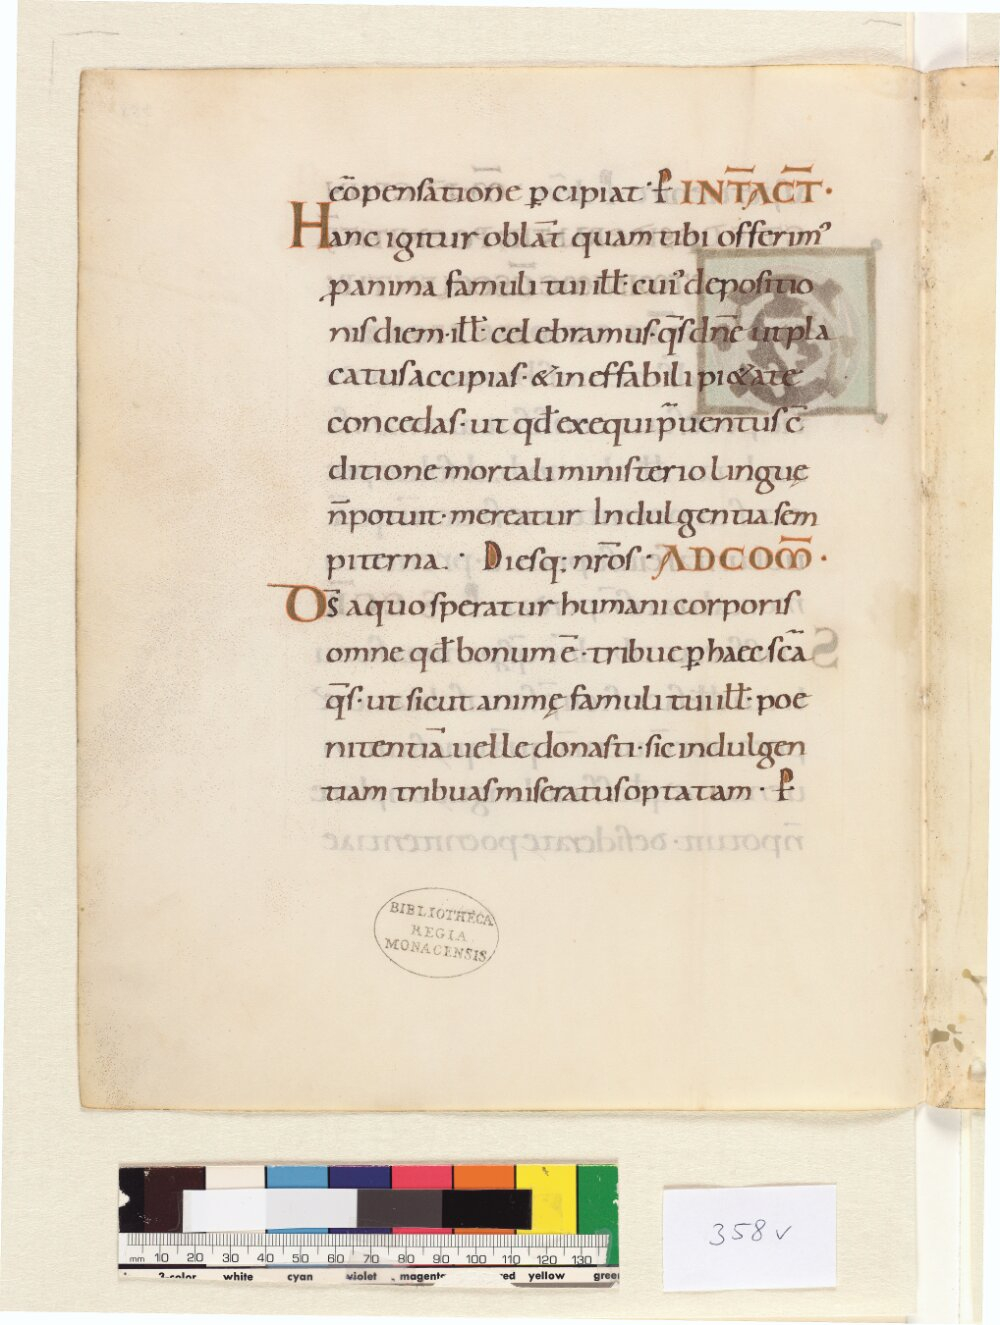 cōpensatione ꝑcipiat · ꝑ INT̄ACT̄ ·
Hanc igitur oblāt quam tibi offerimꝰ
ꝓ anima famuli tui ill̄ · cuiꝰ depositio
nis diem · ill̄ · celebramus · q̄s dn̄e ut pla
catus accipias · & ineffabili pi&ate
concedas · ut qđ exequi p̄uentus c̄
ditione mortali ministerio linguę
n̄ potuit · mereatur Indulgentia sem
piterna . · Diesq; nr̄os · AD COM̄ ·
Ds̄ a quo speratur humani corporis
omne qđ bonum ē · tribue ꝑ haec sc̄a
q̄s · ut sicut animę famuli tui ill̄ · poe
nitentiā uelle donasti · sic indulgen
tiam tribuas miseratus optatam · ꝑ
BIBLIOTHECA
REGIA
MONACENSIS
358 v
mm 10 20 30 40 50 60 70 80 90 100 110 120 130
3-color white cyan violet magenta red yellow green